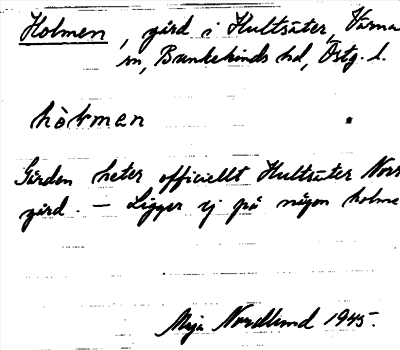 Holmen, gård i Hultsäter, Värna
sn, Bankekinds hd, Östg. l.
hòłmen
Gården heter officiellt Hultsäter Norr
gård. – Ligger ej på någon holme
Maja Nordlund 1945.